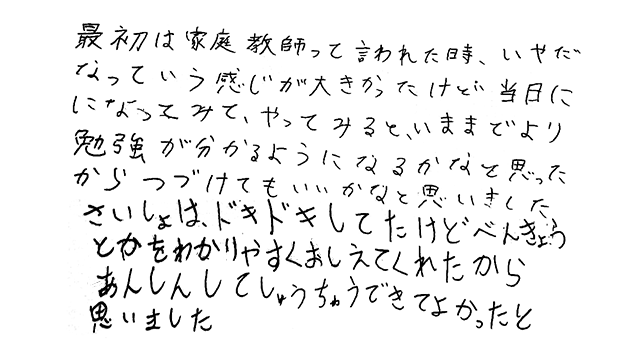 最初は家庭教師って言われた時、いやだ
なっていう感じが大きかったけど当日に
になってみて、やってみると、いままでより
勉強が分かるようになるかなと思った
からつづけてもいいかなと思いました
さいしょは、ドキドキしてたけどべんきょう
とかをわかりやすくおしえてくれたから
あんしんしてしゅうちゅうできてよかったと
思いました